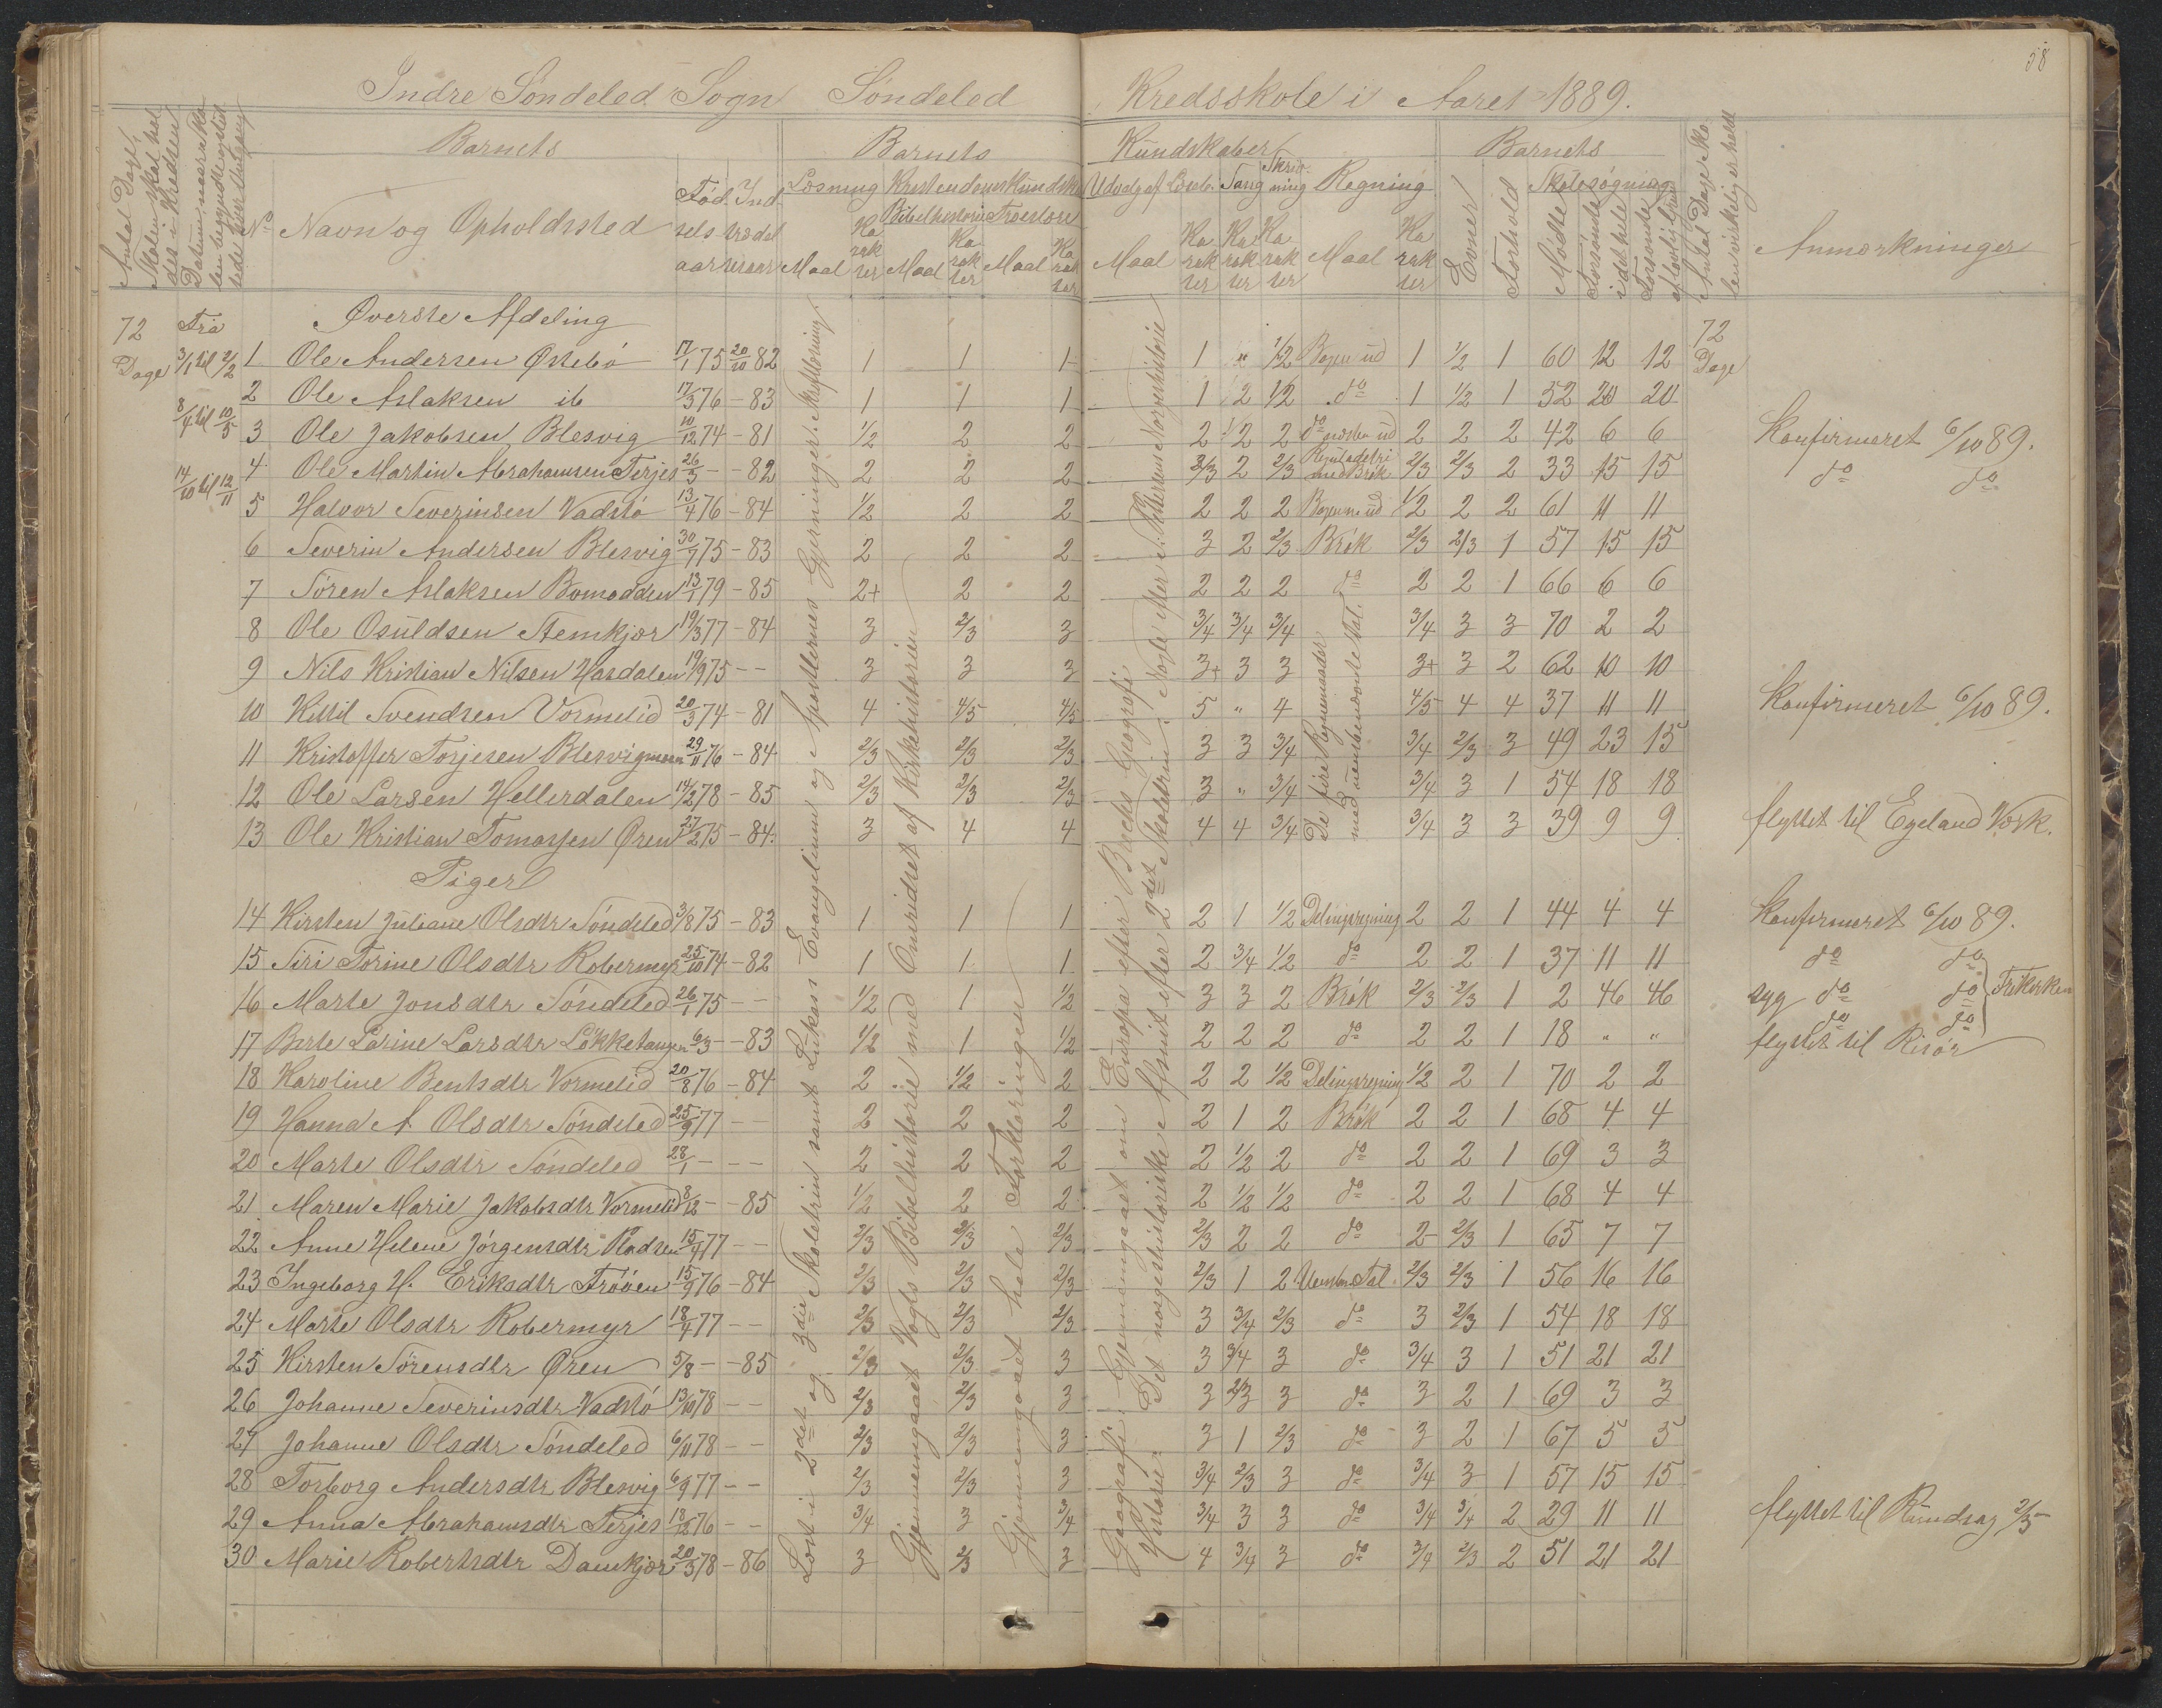 58
Indre Söndeled Sogn Söndeled Kredsskole i Aaret 1889.
Antal Dage, Skolen skal holdes i Kredsen
Barnets Barnets Kundskaber Barnets
No Navn og Opholdssted Födselsaar Læsning Kristendomskundskab Udvalg af Læseb. Sang Skrivning Regning Evner Forhold Skolesøgning Anmærkninger
Bibelhistorie Troeslære Mödte Forsømte i det hele
Maal Karakter Maal Karakter Maal Karakter Maal Karakter Karakter Karakter Maal Karakter
72 Fra Øverste Afdeling 72
Dage 3/1 til 2/2 1 Ole Andersen Østebö 17/1 75 20/10 82 1 1 1 1 " 1/2 1 1/2 1 60 12 12 Dage
2 Ole Aslaksen ib 17/3 76 - 83 1 1 1 1 2 1/2 do 1 1/2 1 52 20 20
8/4 til 10/5 3 Ole Jakobsen Blesvig 10/12 74 - 81 1/2 2 2 2 1/2 2 do 2 2 2 42 6 6 Konfirmeret 6/10 89.
4 Ole Martin Abrahamsen Terjes 26/3 - - 82 2 2 2 2/3 2 2/3 med Brök 2/3 2/3 2 33 15 15 do do
14/10 til 12/11 5 Halvor Severinsen Vadstö 13/4 76 - 84 1/2 2 2 2 2 2 1/2 2 2 61 11 11
6 Severin Andersen Blesvig 30/7 75 - 83 2 2 2 3 2 2/3 Brök 2/3 2/3 1 57 15 15
7 Sören Aslaksen Bomodden 13/1 79 - 85 2+ 2 2 2 2 2 do 2 2 1 66 6 6
8 Ole Osuldsen Stemkjær 19/3 77 - 84 3 2/3 3 3/4 3/4 3/4 3/4 3 3 70 2 2
9 Nils Kristian Nilsen Hasdalen 19/9 75 - - 3 3 3 3+ 3 3 3+ 3 2 62 10 10
10 Kittil Svendsen Vormelid 20/3 74 - 81 4 4/5 4/5 5 " 4 4/5 4 4 37 11 11 Konfirmeret 6/10 89.
11 Kristoffer Terjesen Blesvigmoen 29/11 76 - 84 2/3 2/3 2/3 3 3 3/4 3/4 2/3 3 49 23 15
12 Ole Larsen Hellerdalen 14/12 78 - 85 2/3 2/3 2/3 3 " 3/4 3/4 3 1 54 18 18
13 Ole Kristian Tomassen Øren 27/2 75 - 84. 3 4 4 4 4 3/4 3/4 3 3 39 9 9 flyttet til Egeland Værk.
Piger
14 Kirsten Juliane Olsdtr Söndeled 3/8 75 - 83 1 1 1 2 1 1/2 Delingsregning 2 2 1 44 4 4 Konfirmeret 6/10 89.
15 Siri Torine Olsdtr Robermyr 25/10 74 - 82 1 1 1 2 3/4 1/2 do 2 2 1 37 11 11 do do
16 Marte Jonsdtr Söndeled 26/1 75 - - 1/2 1 1/2 3 3 2 Brök 2/3 2/3 1 2 46 46 syg do do Frikirken
17 Berte Larine Larsdtr Lökketangen 6/3 - - 83 1/2 1 1/2 2 2 2 do 2 2 1 18 " " do do
flyttet til Risör
18 Karoline Bentsdtr Vormelid 20/8 76 - 84 2 1/2 2 2 2 1/2 Delingsregning 1/2 2 1 70 2 2
19 Hanna A Olsdtr Söndeled 25/9 77 - - 2 2 2 2 1 2 Brök 2 2 1 68 4 4
20 Marte Olsdtr Söndeled 28/1 - - - 2 2 2 2 1/2 2 do 2 2 1 69 3 3
21 Maren Marie Jakobsdtr Vormelid 8/12 - - 85 1/2 2 2 2 1/2 1/2 do 2 2 1 68 4 4
22 Anne Helene Jörgensdtr 15/9 77 - - 2/3 2/3 2/3 2/3 2 2 do 2 2/3 1 65 7 7
23 Ingeborg H. Eriksdtr Trööen 15/9 76 - 84 2/3 2/3 2/3 2/3 1 2 Uensben. Tal 2/3 2/3 1 56 16 16
24 Marte Olsdtr Robermyr 18/4 77 - - 2/3 2/3 2/3 3 3/4 2/3 do 3 2/3 1 54 18 18
25 Kirsten Sörensdtr Øren 5/8 - - 85 2/3 2/3 3 3 3/4 3 do 3/4 3 1 51 21 21
26 Johanne Severinsdtr Vadstö 13/10 78 - - 2/3 2/3 3 3 2/3 3 do 3 2 1 69 3 3
27 Johanne Olsdtr Söndeled 6/11 78 - - 2/3 2/3 3 3 1 2/3 do 3 2 1 67 5 5
28 Torborg Andersdtr Blesvig 6/9 77 - - 2/3 2/3 3 3/4 2/3 3 do 3/4 3 1 57 15 15
29 Anna Abrahamsdtr Terjes 18/12 76 - - 3/4 3 3/4 3/4 3 3 do 3/4 3/4 2 29 11 11 flyttet til Rundsag 2/5
30 Marie Robertsdtr Damkjær 20/3 78 - 86 3 2/3 3 4 3/4 3 do 3/4 2/3 2 51 21 21
Læst i 2det og 3die Skoletrin samt Lukas Evangelium og Apostlernes Gjerninger.
Gjennemgaaet Vogts Bibelhistorie med Omridset af Kirkehistorien
Gjennemgaaet hele Forklaringen
Geografi: Gjennemgaaet om Europa efter Geografi
Historie: Det norgeshistoriske Afsnit efter 2det Skoletrin.
De fire Regningsarter med uensbenævnte Tal.